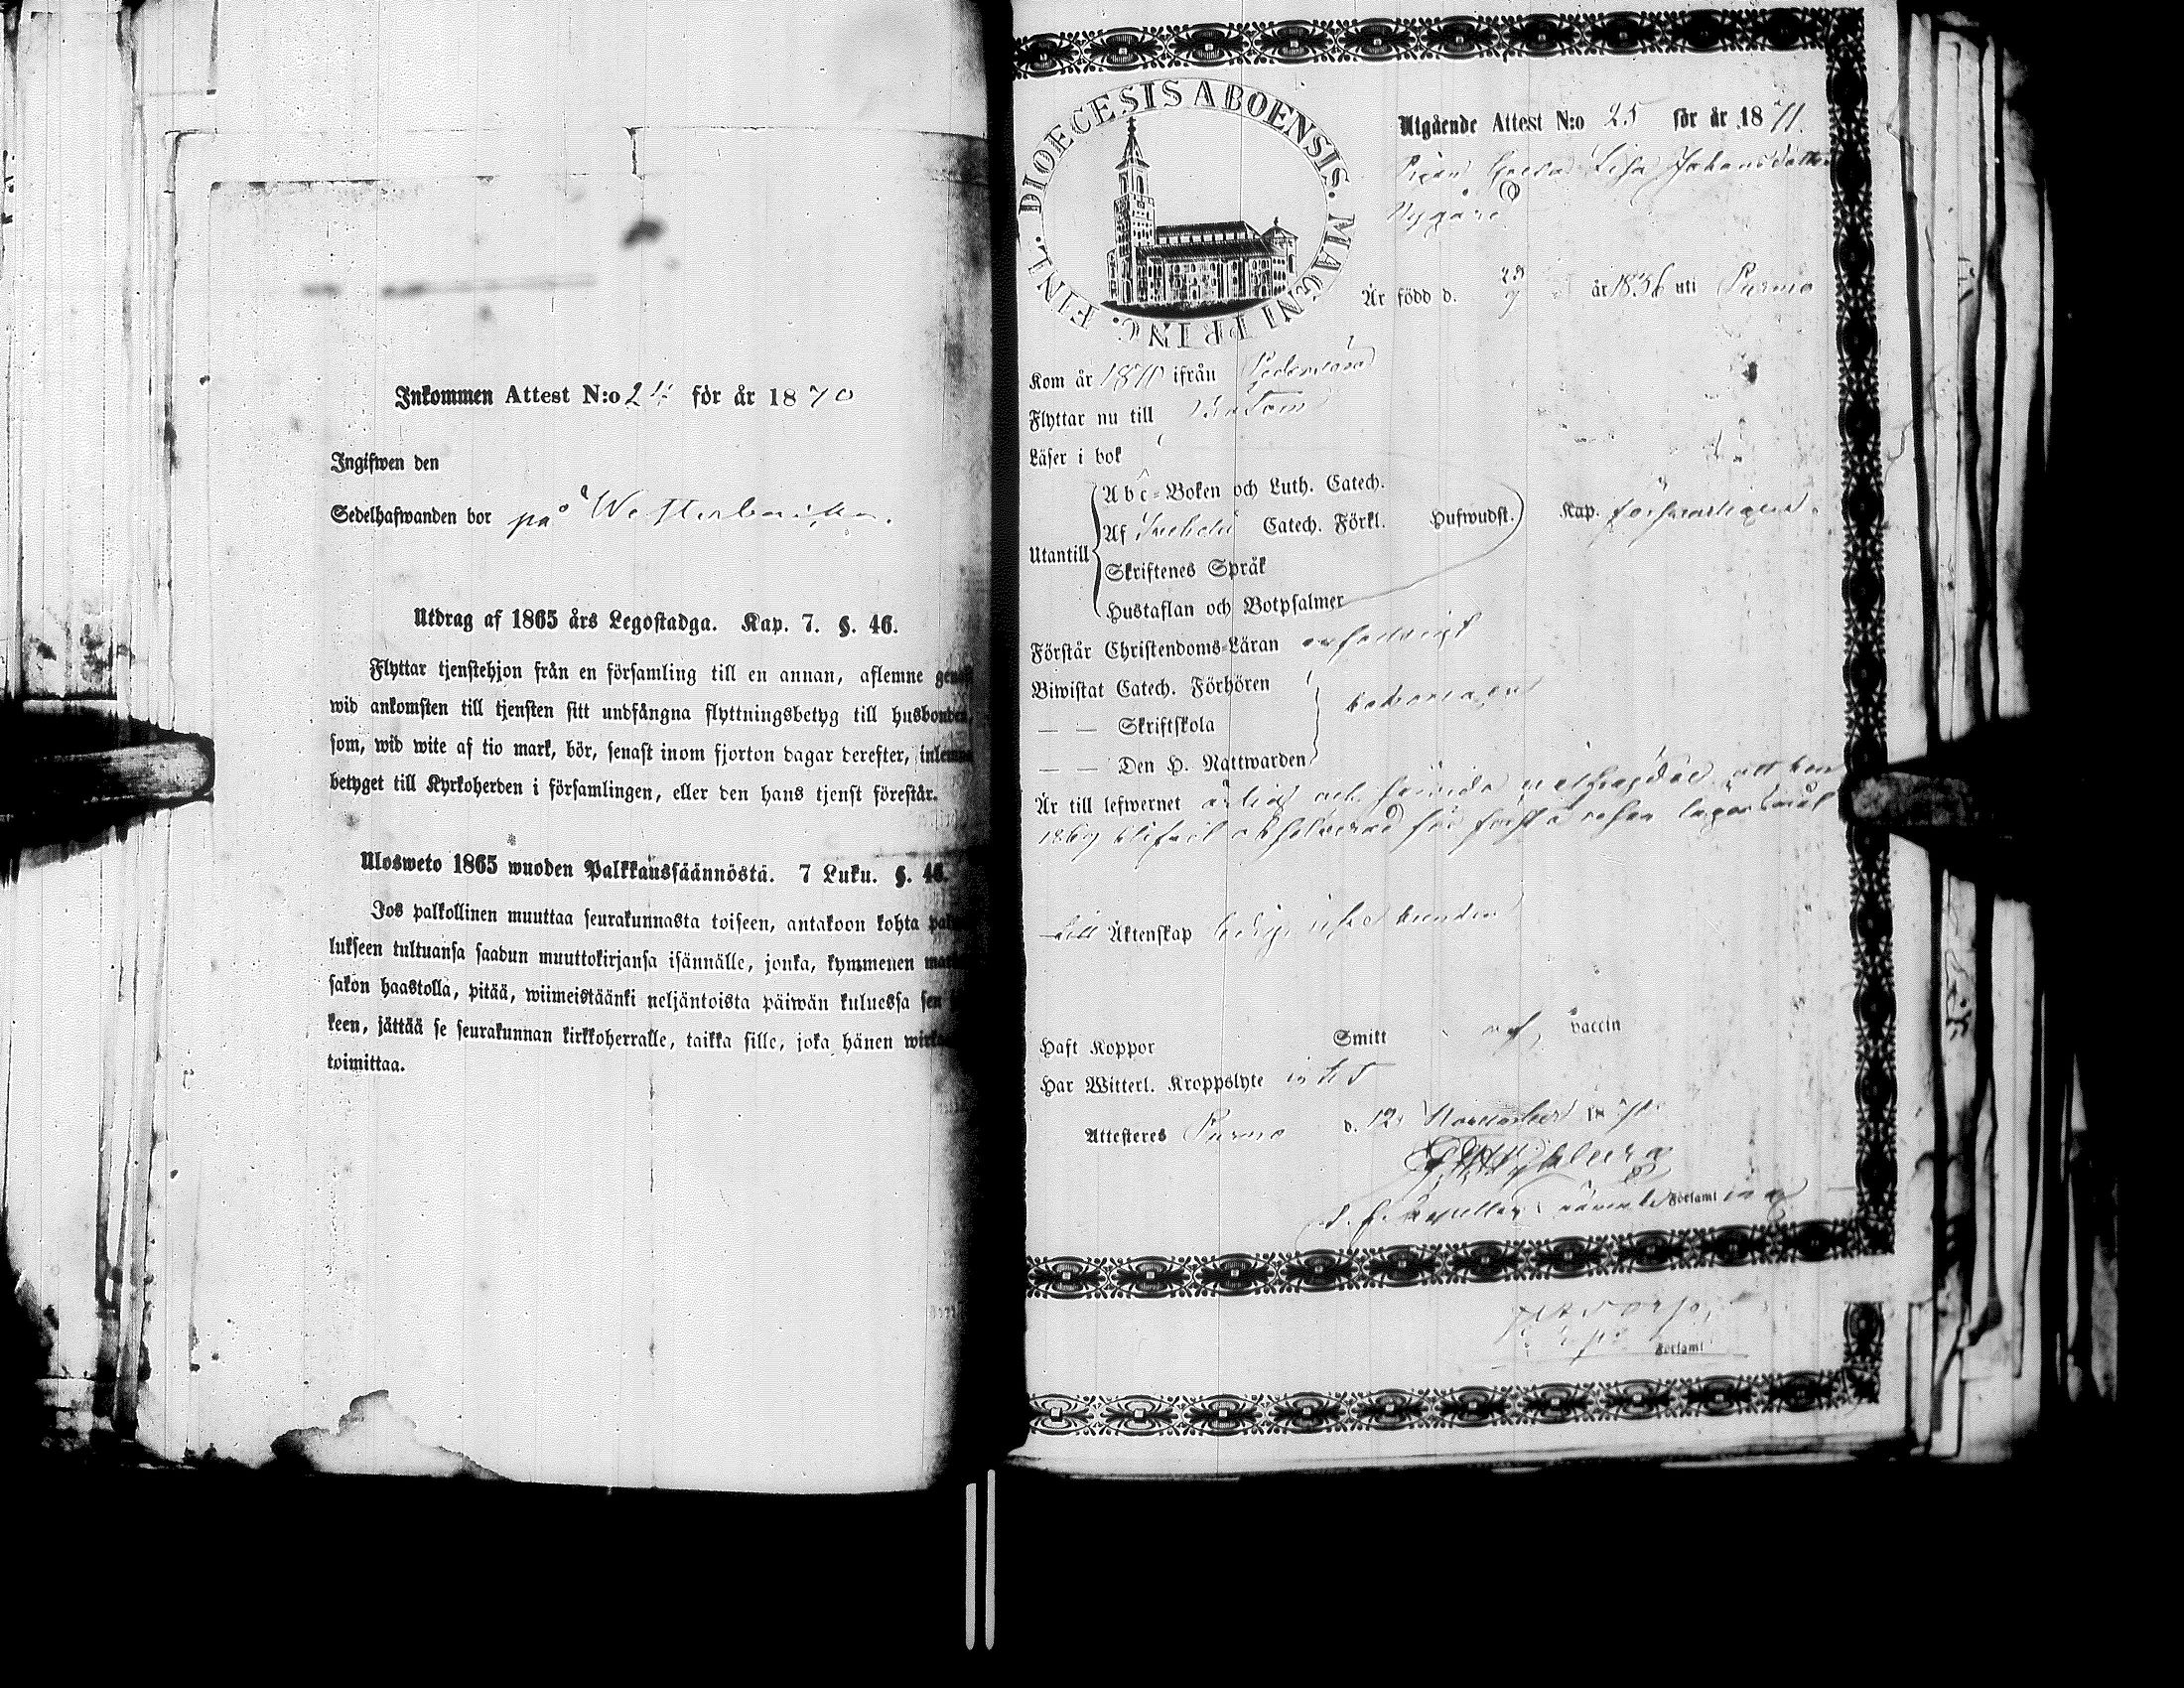 Inkommen Attest N:o 24 för år 1870
Ingifwen den
Sedelhafwanden bor på Westerbacka.
Utdrag af 1865 års Legostadga. Kap. 7. §. 46.
Flyttar tjenstehjon från en församling till en annan, aflemne
wid ankomsten till tjensten sitt undfångna flyttningsbetyg till husbonden,
som, wid wite af tio mark, bör, senast inom fjorton dagar derefter, inlemna
betyget till Kyrkoherden i församlingen, eller den hans tjenst förestår.
Ulosweto 1865 wuoden Palkkaussäännöstä. 7 Luku. §. 46.
Jos palkollinen muuttaa seurakunnasta toiseen, antakoon kohta
lukseen tultuansa saadun muuttokirjansa isännälle, jonka, kymmenen
sakon haastolla, pitää, wiimeistäänki neljäntoista päiwän kuluessa sen
keen, jättää se seurakunnan kirkkoherralle, taikka sille, joka hänen
toimittaa.
FINL. DIOECESIS ABOENSIS. MAGNI PRINC.
Utgående Attest N:o 25 för år 1871.
Pigan Greta Lisa Johansdotter
Nygård
Är född d. 29/9 år 1836 uti Purmo
Kom år 1870 ifrån Pedersöre
Flyttar nu till
Läser i bok
Abc-Boken och Luth. Catech.
Utantill Af Svebelii Catech. Förkl. Hufwudst. Kap. försvarligen.
Skriftenes Språk
Hustaflan och Botpsalmer
Förstår Christendoms-Läran
Biwistat Catech. Förhören
— — Skriftskola
— — Den H. Nattwarden
Är till lefwernet ärlig och
1869 blifvit absolverad för första resan lägersmål
till Äktenskap ledig
Haft Koppor Smitt af vaccin
Har Witterl. Kroppslyte intet
Attesteres Purmo d. 12 November 1871.
Församl
Församl